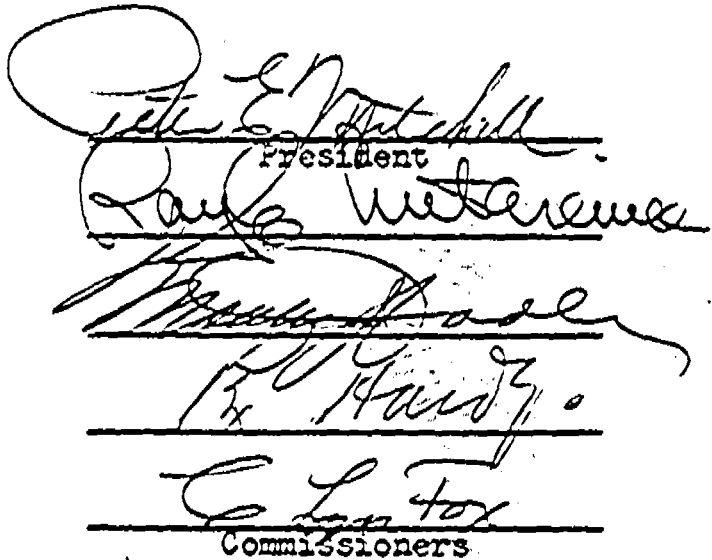 Peter E. Mitchell
President
Ray E. Untereiner
Rex Hardy.
C Lyn Fox
Commissioners